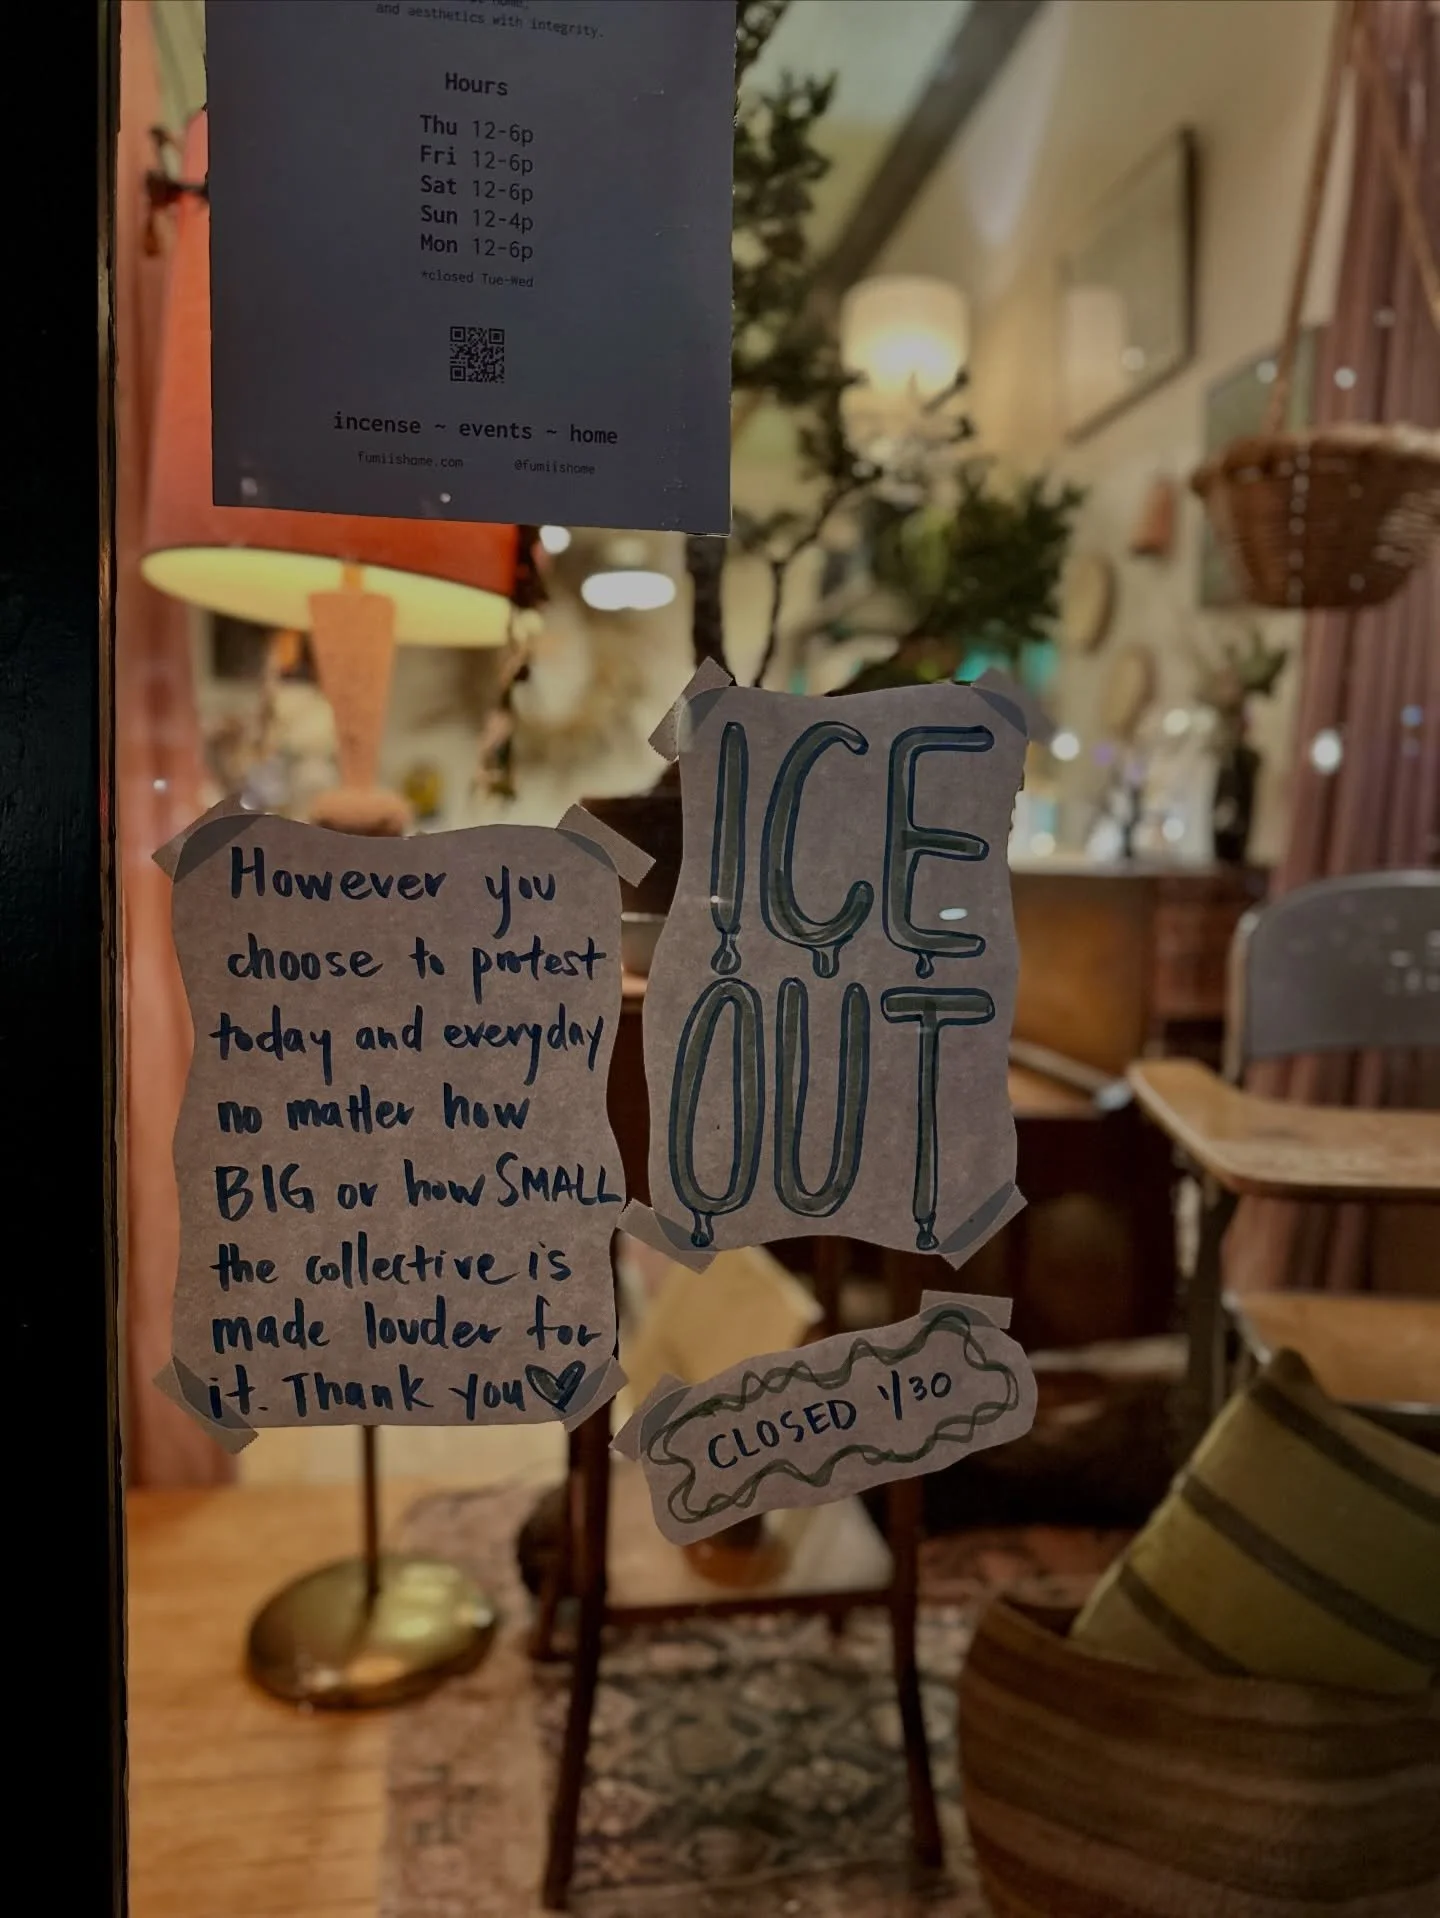 and aesthetics with integrity.
Hours
Thu 12-6p
Fri 12-6p
Sat 12-6p
Sun 12-4p
Mon 12-6p
*closed Tue-Wed
incense ~ events ~ home
fumiishome.com @fumiishome
ICE
OUT
However you
choose to protest
today and everyday
no matter how
BIG or how SMALL,
the collective is
made louder for
it. Thank you♡
CLOSED 1/30